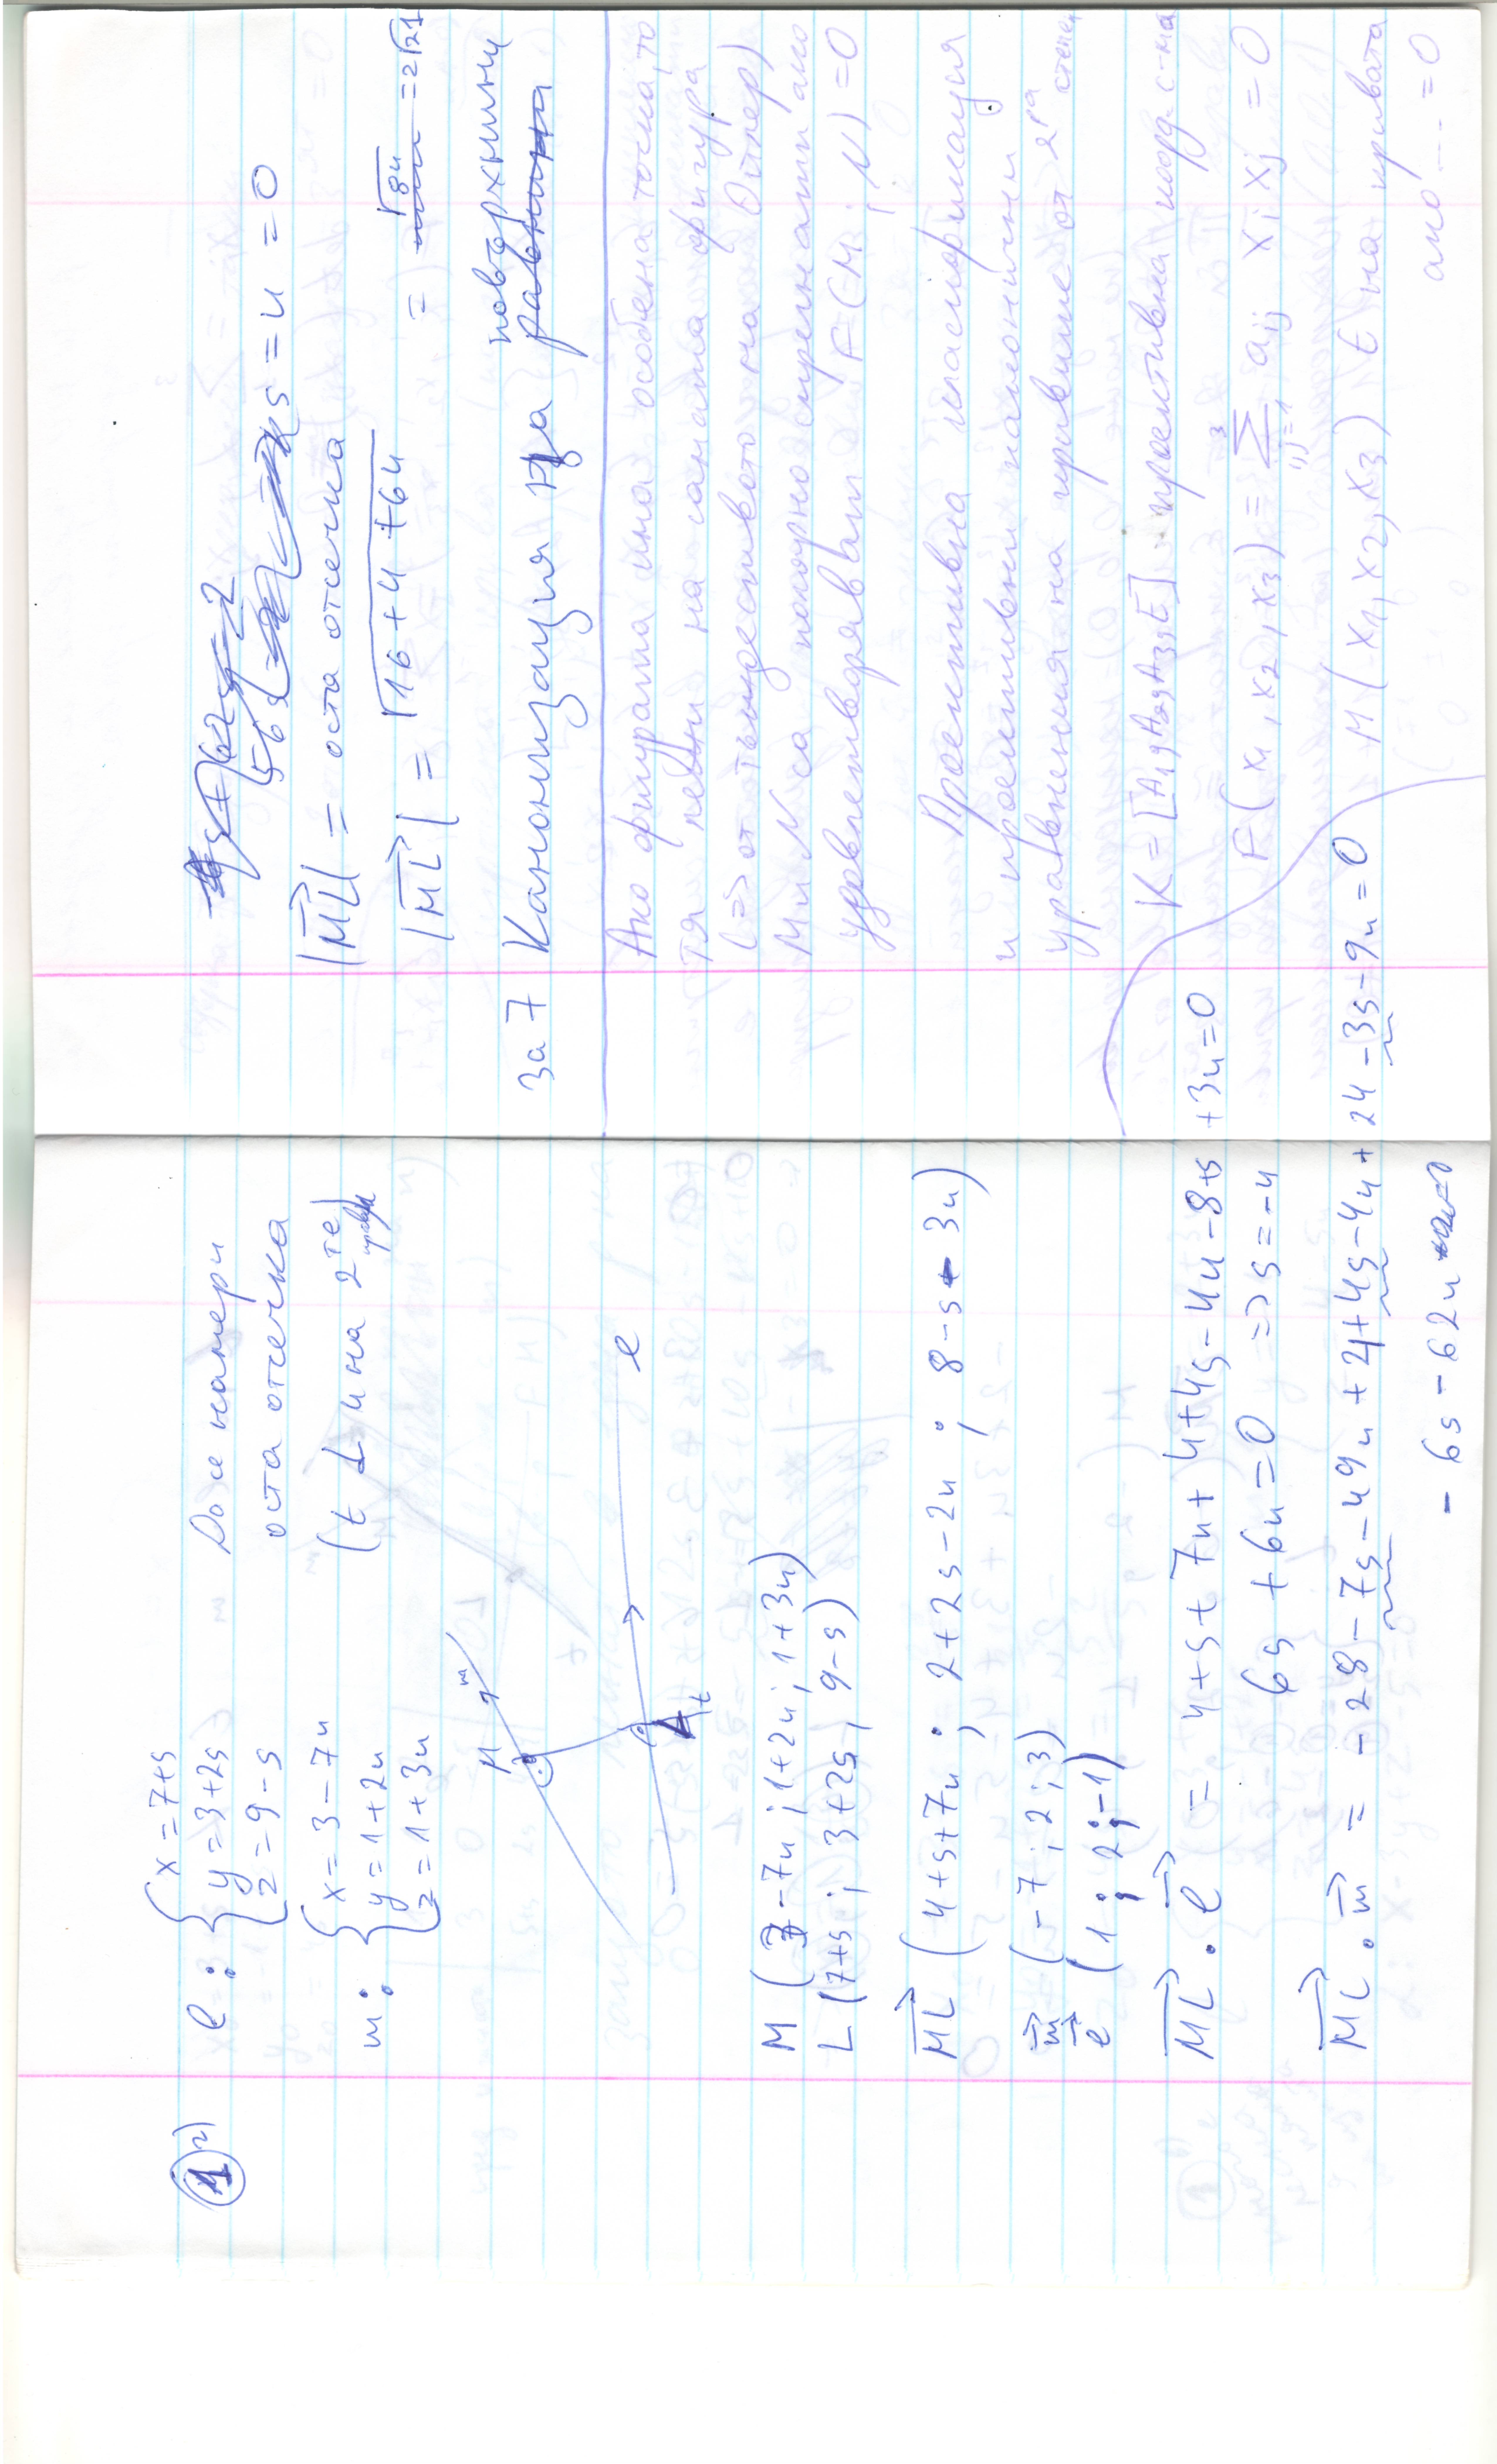 1 г)
l: { x = 7+s
y = 3+2s
z = 9-s
Да се намери
оста отсечка
m: { x = 3-7u
y = 1+2u
z = 1+3u
(t ⊥ и на 2те прави)
M m
l
L t
M (3-7u; 1+2u; 1+3u)
L (7+s; 3+2s; 9-s)
ML (4+s+7u; 2+2s-2u; 8-s-3u)
m (-7; 2; 3)
l (1; 2; -1)
ML . l = 4+s+7u+4+4s-4u-8+s+3u=0
6s+6u=0 => s=-u
ML . m = -28-7s-49u+4+4s-4u+24-3s-9u=0
-6s-62u
56s s = u = 0
|ML| = оста отсечка
|ML| = √16+4+64 = √84 = 2√21
за 7 Канонизация на повърхнини
Ако фигурата има особена точка, то
тя лежи на самата фигура
(=> от тъждеството на Ойлер)
M и N са полярно спрегнати ако
удовлетворяват F(M; N) = 0
Проективна класификация
и проективни канонични
уравнения на кривите от 2ра степен
K = [A1, A2, A3, E] проективна коорд. с-ма
F(x1, x2, x3) = Σ aij xi xj = 0
3
i,j=1
M (x1, x2, x3) ∈ на кривата
ако ... = 0